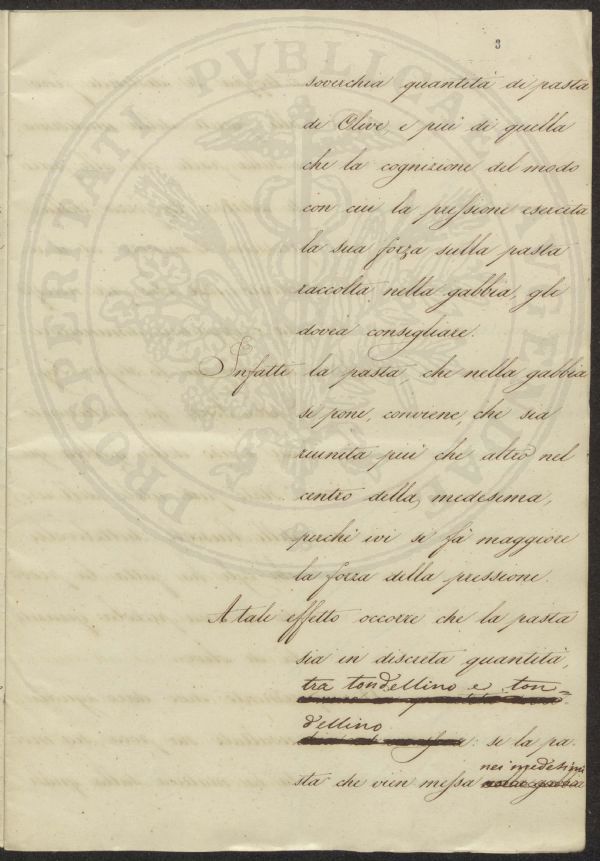 3
soverchia quantità di pasta
di Olive, e più di quella
che la cognizione del modo
con cui la pressione esercita
la sua forza sulla pasta
raccolta nella gabbia, gli
dovea consigliare.
Infatti la pasta, che nella gabbia
si pone, conviene, che sia
riunita più che altro nel
centro della medesima,
perchè ivi si fà maggiore
la forza della pressione.
A tale effetto occorre che la pasta
sia in discreta quantità,
tra tondellino e ton=
dellino
: se la pa=
nei medesimi
sta che vien messa
PROSPERITATI PVBLICAE AVGENDAE